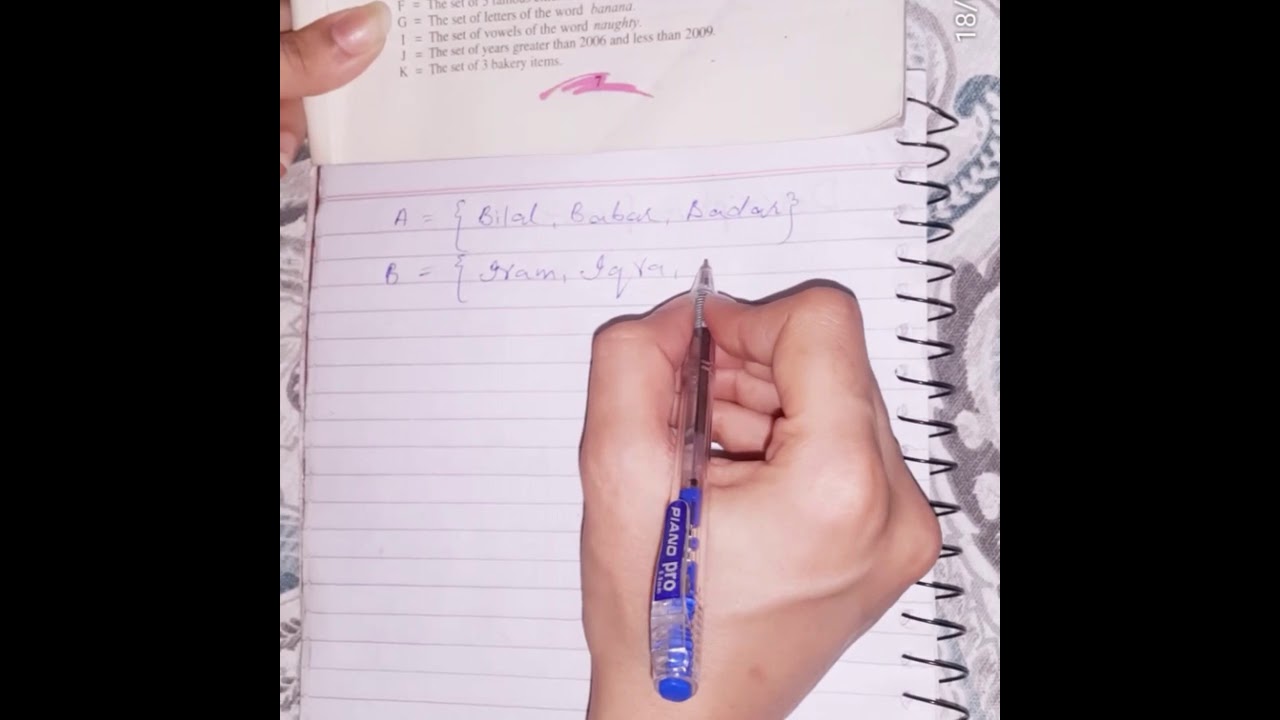 F = The set of 5 famous
G = The set of letters of the word banana.
I = The set of vowels of the word naughty.
J = The set of years greater than 2006 and less than 2009.
K = The set of 3 bakery items.
7
18/
A = { Bilal, Babar, Badar}
B = { Iram, Iqra,
PIANO pro